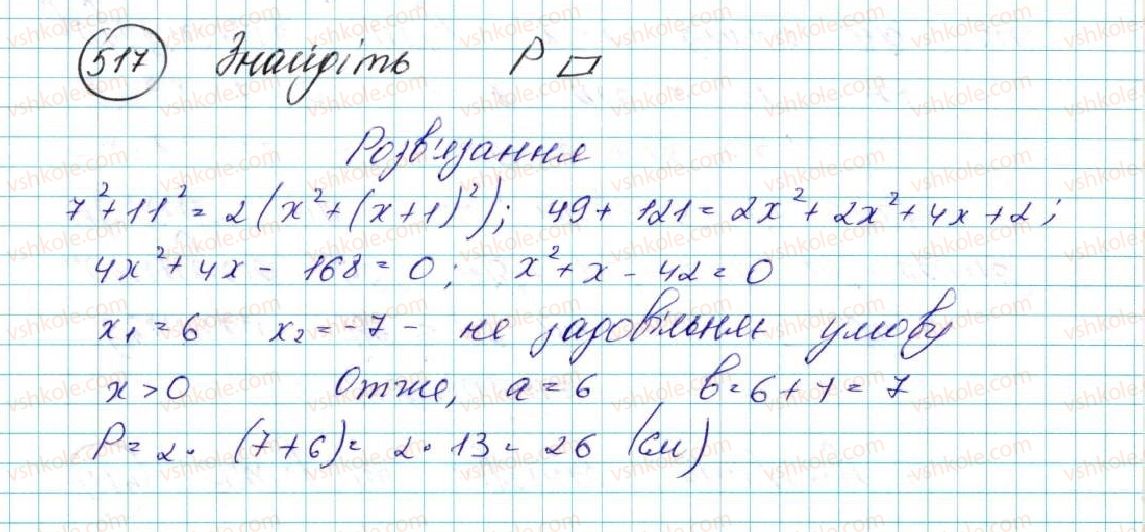 517 Знайдіть P ▱
Розв'язання
7² + 11² = 2(x² + (x+1)²); 49 + 121 = 2x² + 2x² + 4x + 2;
4x² + 4x - 168 = 0; x² + x - 42 = 0
x₁ = 6 x₂ = -7 - не задовільняє умову
x > 0 Отже, a = 6 b = 6 + 1 = 7
P = 2 · (7+6) = 2 · 13 = 26 (см)
vshkole.com